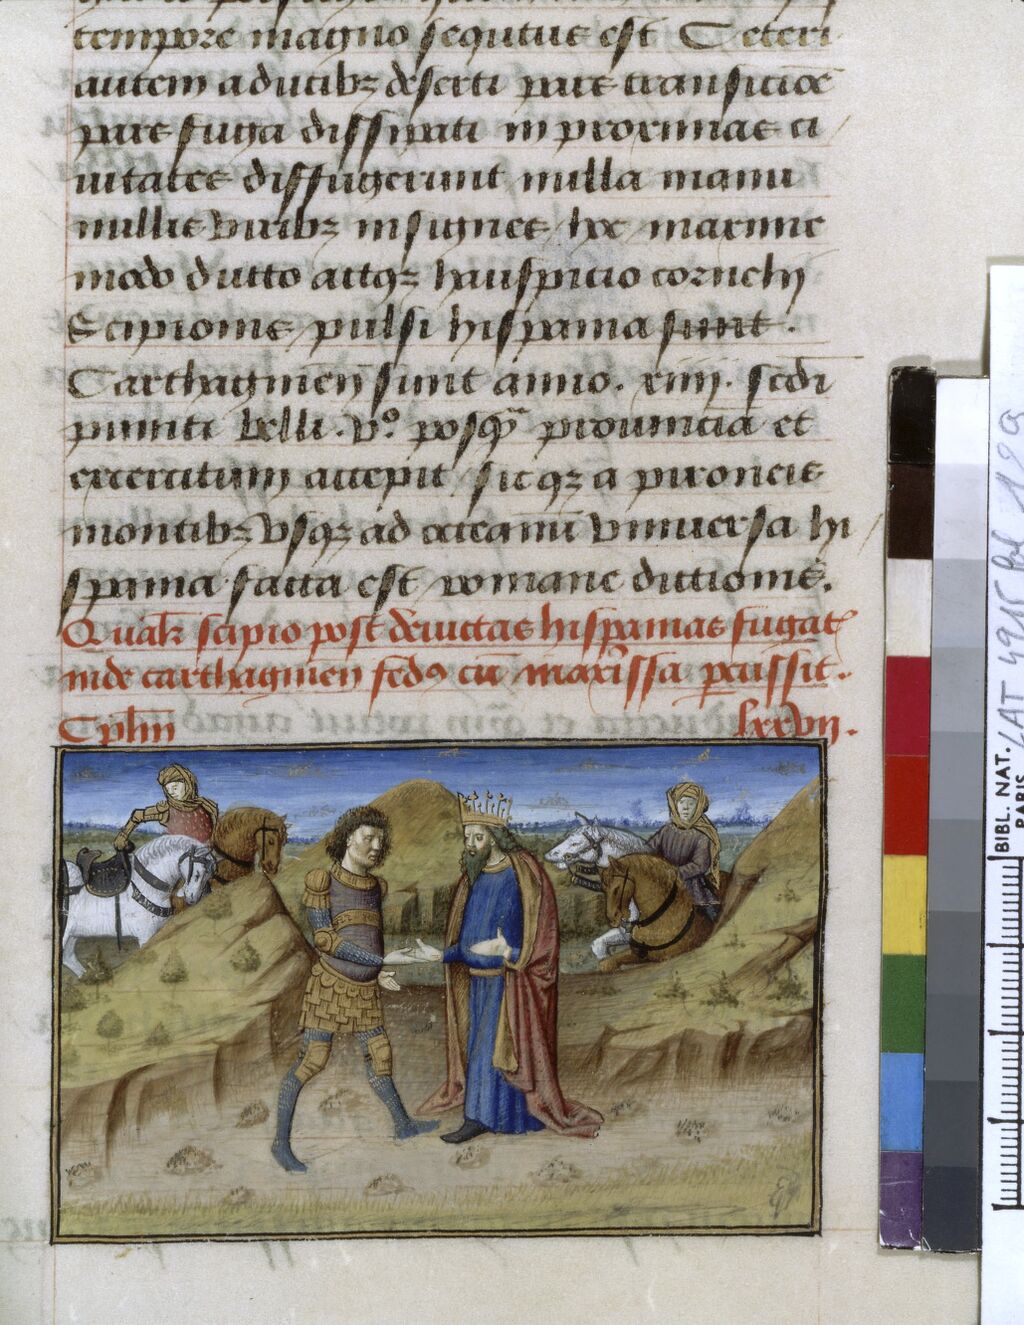 tempore magno sequtus est Ceteri
autem a ducibꝫ deserti parꝭ transicioē
parꝭ fuga dissipati in proximas ci
uitates diffugerunt nulla manu
nullis viribꝫ insignes hoc maxime
modo ductu atqꝫ hauspicio cornelij
Scipionis pulsi hispania sunt.
Carthaginēn sunt anno. xiiij. secūdi
puniti belli. v°. posqᵃ prouincia et
exercitum accepit sicqꝫ a pironeis
montibꝫ vsqꝫ ad occeanū vniuersa hi
spania facta est romane dictionis.
Qualr̄ scipio post deuictas hispanias fugatꝭ
inde carthaginēn fedꝰ cū maxīssa percussit.
Cplm̄ lxxvij.
BIBL. NAT.
PARIS
LAT 4915 fol 189